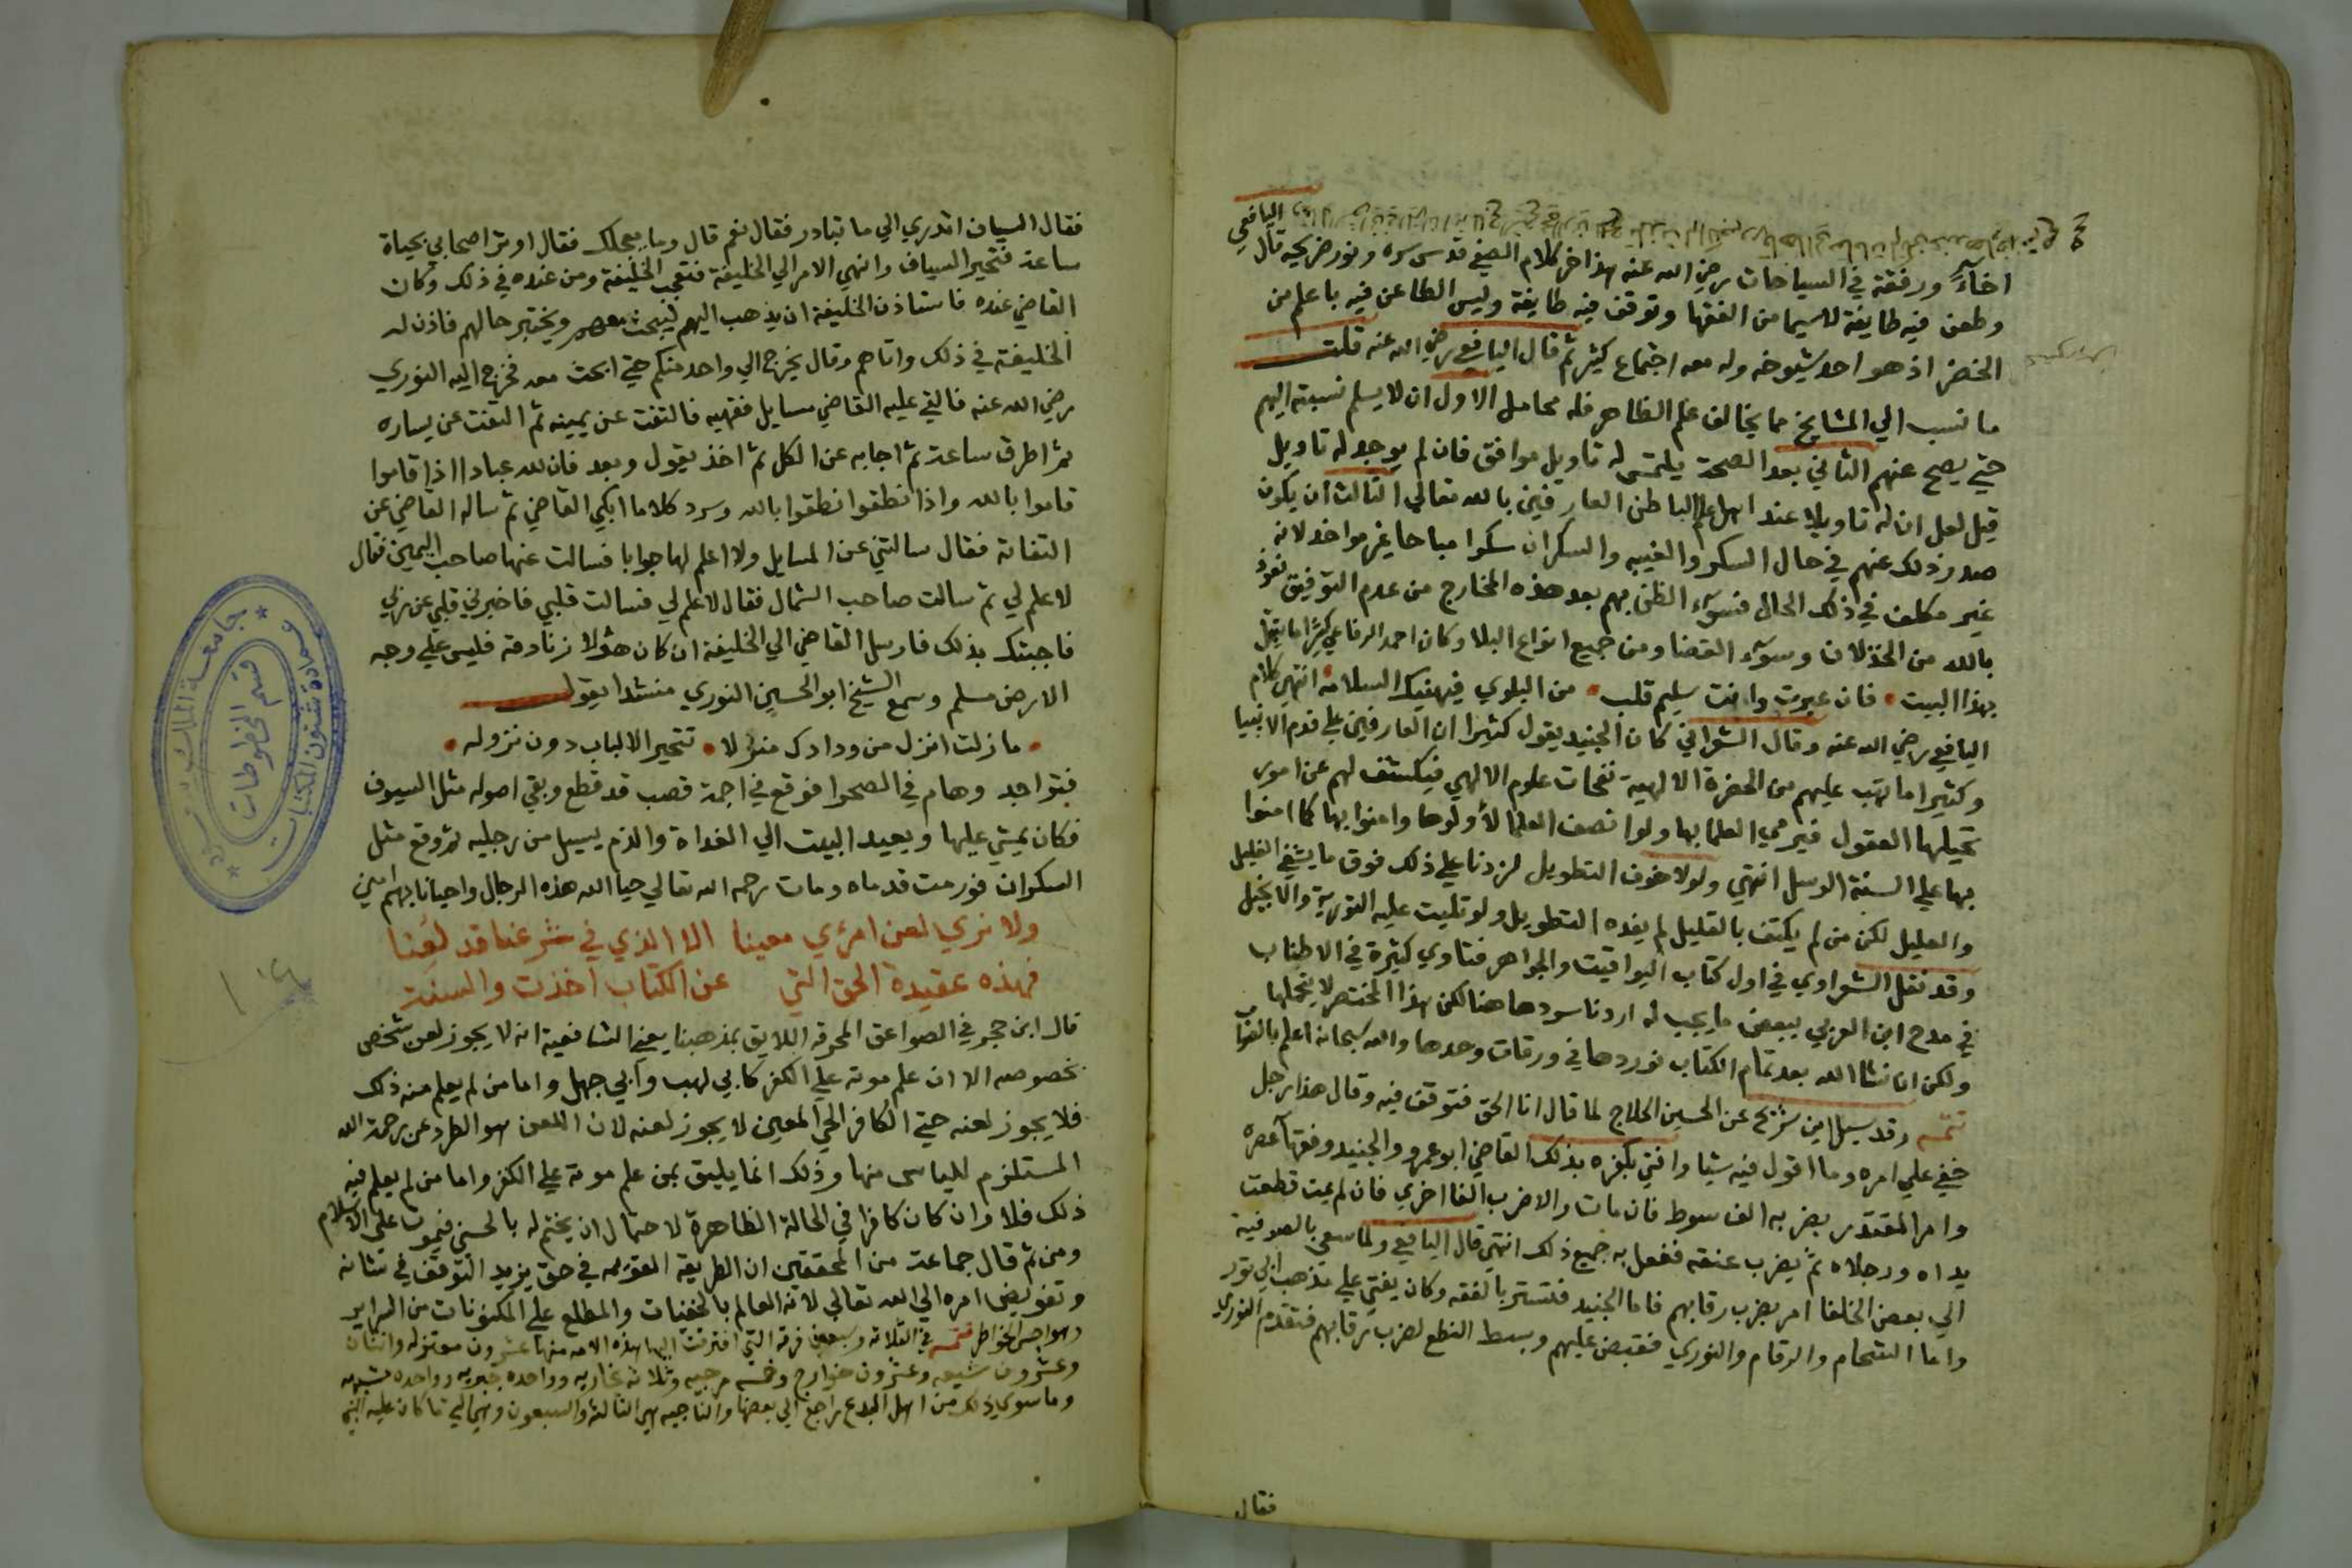 اخاء ورفقة في السياحات رضي الله عنه هذا اخر كلام الصفي قدس سره ونور ضريحه قال اليافعي
وطعن فيه طايفة لاسيما من الفقها وتوقف فيه طايفة وليس الطاعن فيه باعلم من
الخضر اذ هو احد شيوخه وله معه اجتماع كثير ثم قال اليافعي رضي الله عنه قلت
ما نسب الي المشايخ مما يخالف علم الظاهر فله محامل الاول ان لا يسلم نسبته اليهم
حتي يصح عنهم الثاني بعد الصحة يلتمس له تاويل موافق فان لم يوجد له تاويل
قيل لعل ان له تاويلا عند اهل علم الباطن العارفين بالله تعالي الثالث ان يكون
صدر ذلك عنهم في حال السكر والغيبه والسكران سكرا مباحا غير مواخذ لانه
غير مكلف في ذلك الحال فسوء الظن بهم بعد هذه المخارج من عدم التوفيق نعوذ
بالله من الخذلان وسوء القضا ومن جميع انواع البلا وكان احمد الرفاعي كثيرا ما يتمثل
بهذا البيت فان عبرت وانت سليم قلب من البلوي فيهنيك السلامة انتهي كلام
اليافعي رضي الله عنه وقال الشعراني كان الجنيد يقول كثيرا ان العارفين علي قدم الانبيا
وكثيرا ما تهب عليهم من الحضرة الالهية نفحات علوم الالهي فيكشف لهم عن امور
تحيلها العقول فيرمي العلما بها ولو انصف العلما لأولوها وامنوا بها كما امنوا
بها علي السنة الرسل انتهي ولولا خوف التطويل لزدنا علي ذلك فوق ما يشفي الغليل
والعليل لكن من لم يكتف بالقليل لم يفده التطويل ولو تليت عليه التورية والانجيل
وقد نقل الشعراوي في اول كتاب اليواقيت والجواهر فتاوي كثيرة في الاطناب
في مدح ابن العربي ببعض ما يجب له اردنا سردها هنا لكن هذا المختصر لا يحملها
ولكن ان شا الله بعد تمام الكتاب نوردها في ورقات وحدها والله سبحانه اعلم بالصواب
تتمه وقد سيل ابن سريج عن الحسين الحلاج لما قال انا الحق فتوقف فيه وقال هذا رجل
خفي علي امره وما اقول فيه شيا وافتي بكفره بذلك القاضي ابو عمرو والجنيد وفقهاء عصره
وامر المقتدر بضربه الف سوط فان مات والا ضرب الفا اخري فان لم يمت قطعت
يداه ورجلاه ثم يضرب عنقه ففعل به جميع ذلك انتهي قال اليافعي ولما سعي بالصوفية
الي بعض الخلفا امر بضرب رقابهم فاما الجنيد فتستر بالفقه وكان يفتي علي مذهب ابي ثور
واما الشحام والرقام والنوري فقبض عليهم وبسط النطع لضرب رقابهم فتقدم النوري
فقال
فقال السياف اتدري الي ما تبادر فقال نعم قال وما يعجلك فقال اوثر اصحابي بحياة
ساعة فتحير السياف وانهي الامر الي الخليفة فتعجب الخليفة ومن عنده في ذلك وكان
القاضي عنده فاستاذن الخليفة ان يذهب اليهم ليبحث معهم ويختبر حالهم فاذن له
الخليفة في ذلك واتاهم وقال يخرج الي واحد منكم حتي ابحث معه فخرج اليه النوري
رضي الله عنه فالقي عليه القاضي مسايل فقهيه فالتفت عن يمينه ثم التفت عن يساره
ثم اطرق ساعة ثم اجابه عن الكل ثم اخذ يقول وبعد فان لله عبادا اذا قاموا
قاموا بالله واذا نطقوا نطقوا بالله وسرد كلاما ابكي القاضي ثم ساله القاضي عن
التفاته فقال سالتني عن المسايل ولا اعلم لها جوابا فسالت عنها صاحب اليمين فقال
لا علم لي ثم سالت صاحب الشمال فقال لا علم لي فسالت قلبي فاخبرني قلبي عن ربي
فاجبتك بذلك فارسل القاضي الي الخليفة ان كان هولا زنادقة فليس علي وجه
الارض مسلم وسمع الشيخ ابو الحسين النوري منشدا يقول
ما زلت انزل من ودادك منزلا تتحير الالباب دون نزوله
فتواجد وهام في الصحرا فوقع في اجمة قصب قد قطع وبقي اصوله مثل السيوف
فكان يمشي عليها ويعيد البيت الي الغداة والدم يسيل من رجليه ثم وقع مثل
السكران فورمت قدماه ومات رحمه الله تعالي حيا الله هذه الرجال واحيانا بهم امين
ولا نري لعن امرئ معينا الا الذي في شرعنا قد لعنا
فهذه عقيدة الحق التي عن الكتاب اخذت والسنة
قال ابن حجر في الصواعق المحرقه اللايق بمذهبنا يعني الشافعية انه لا يجوز لعن شخص
بخصوصه الا ان علم موته علي الكفر كابي لهب وابي جهل واما من لم يعلم منه ذلك
فلا يجوز لعنه حتي الكافر الحي المعين لا يجوز لعنه لان اللعن هو الطرد عن رحمة الله
المستلزم للياس منها وذلك انما يليق بمن علم موته علي الكفر واما من لم يعلم فيه
ذلك فلا وان كان كافرا في الحالة الظاهرة لاحتمال ان يختم له بالحسني فيموت علي الاسلام
ومن ثم قال جماعة من المحققين ان الطريقة القويمه في حق يزيد التوقف في شانه
وتفويض امره الي الله تعالي لانه العالم بالخفيات والمطلع علي المكنونات من السراير
وهواجس الخواطر تتمه في الثلاثه وسبعين فرقه التي افترقت اليها هذه الامه منها عشرون معتزله واثنتان
وعشرون شيعه وعشرون خوارج وخمسه مرجيه وثلاثه نجاريه وواحده جبريه وواحده مشبهه
وما سوي ذلك من اهل البدع راجع الي بعضها والناجيه هي الثالثه والسبعون وهي التي ما كان عليه النبي
جامعة الملك سعود
عمادة شئون المكتبات
قسم المخطوطات